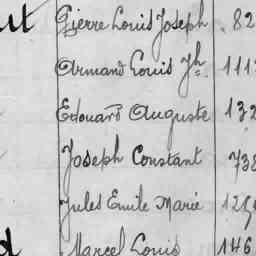 Pierre Louis Joseph 82
Armand Louis Jh. 111
Edouard Auguste 132
Joseph Constant 738
Jules Emile Marie
Marcel Louis 146